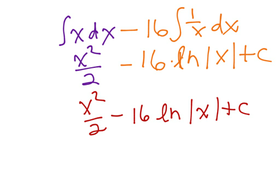 ∫x dx − 16 ∫ 1/x dx
x²/2 − 16 · ln |x| + c
x²/2 − 16 ln |x| + c